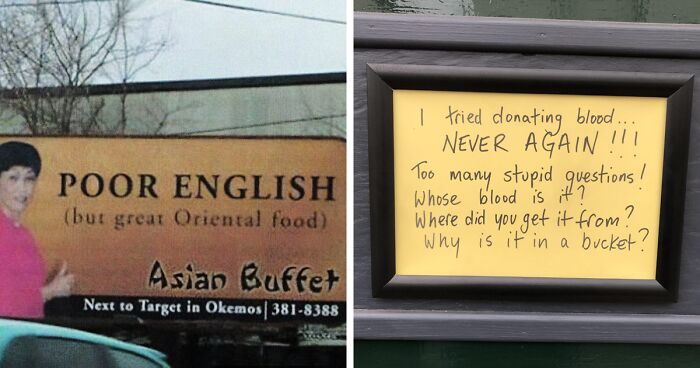 POOR ENGLISH
(but great Oriental food)
Asian Buffet
Next to Target in Okemos| 381-8388
I tried donating blood...
NEVER AGAIN !!!
Too many stupid questions!
Whose blood is it?
Where did you get it from?
Why is it in a bucket?